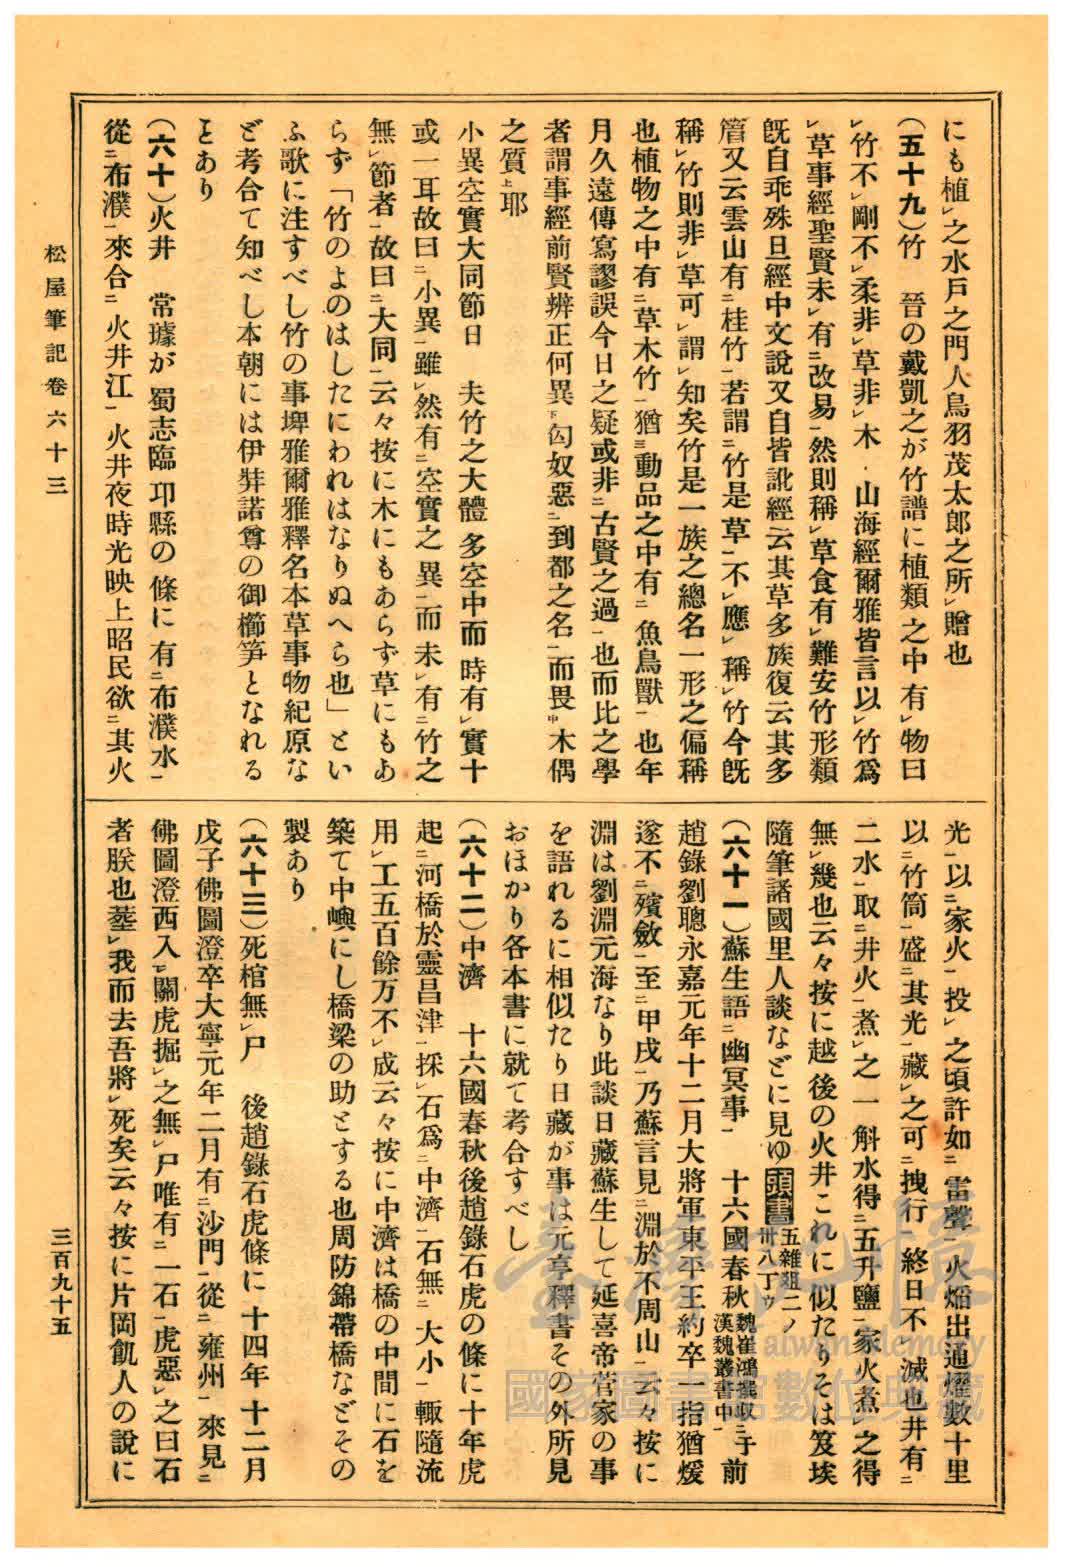 にも植㆑之水戸之門人鳥羽茂太郎之所㆑贈也
（五十九）竹　晉の戴凱之が竹譜に植類之中有㆑物曰
㆑竹不㆑剛不㆑柔非㆑草非㆑木・山海經爾雅皆言以㆑竹爲
㆑草事經聖賢未㆑有㆓改易㆒然則稱㆑草食有㆑難安竹形類
既自乖殊旦經中文說又自皆訛經云其草多族復云其多
簷又云雲山有㆓桂竹㆒若謂㆓竹是草㆒不㆑應㆑稱㆑竹今既
稱㆑竹則非㆑草可㆑謂㆑知矣竹是一族之總名一形之偏稱
也植物之中有㆓草木竹㆒猶㆘動品之中有㆓魚鳥獸㆒也年
月久遠傳寫謬誤今日之疑或非㆓古賢之過㆒也而比之學
者謂事經前賢辨正何異㆘匈奴惡㆓到都之名㆒而畏㆗木偶
之質㆖耶
小異空實大同節日　夫竹之大體多空中而時有㆑實十
或一耳故曰㆓小異㆒雖㆑然有㆓空實之異㆒而未㆑有㆓竹之
無㆑節者㆒故曰㆓大同㆒云々按に木にもあらず草にもあ
らず「竹のよのはしたにわれはなりぬへら也」とい
ふ歌に注すべし竹の事埤雅爾雅釋名本草事物紀原な
ど考合て知べし本朝には伊弉諾尊の御櫛笋となれる
とあり
（六十）火井　常璩が蜀志臨邛縣の條に有㆓布濮水㆒
從㆓布濮㆒來合㆓火井江㆒火井夜時光映上昭民欲㆓其火
光㆒以㆓家火㆒投㆑之頃許如㆓雷聲㆒火焔出通燿數十里
以㆓竹筒㆒盛㆓其光㆒藏㆑之可㆓拽行㆒終日不㆑滅也井有㆓
二水㆒取㆓井火㆒煮㆑之一斛水得㆓五升鹽㆒家火煮㆑之得
無㆑幾也云々按に越後の火井これに似たりそは笈埃
隨筆諸國里人談などに見ゆ頭書五雜俎二ノ卅八丁ウ
（六十一）蘇生語㆓幽冥事㆒　十六國春秋魏崔鴻撰収㆓于漢魏叢書中㆒前
趙錄劉聰永嘉元年十二月大將軍東平王約卒一指猶煖
遂不㆓殯斂㆒至㆓甲戌㆒乃蘇言見㆓淵於不周山㆒云々按に
淵は劉淵元海なり此談日藏蘇生して延喜帝菅家の事
を語れるに相似たり日藏が事は元亨釋書その外所見
おほかり各本書に就て考合すべし
（六十二）中濟　十六國春秋後趙錄石虎の條に十年虎
起㆓河橋於靈昌津㆒採㆑石爲㆓中濟㆒石無㆓大小㆒輙隨流
用㆑工五百餘万不㆑成云々按に中濟は橋の中間に石を
築て中嶼にし橋梁の助とする也周防錦帶橋などその
製あり
（六十三）死棺無㆑尸　後趙錄石虎條に十四年十二月
戊子佛圖澄卒大寧元年二月有㆓沙門㆒從㆓雍州㆒來見㆓
佛圖澄西入㆒㆑關虎掘㆑之無㆑尸唯有㆓一石㆒虎惡㆑之曰石
者朕也塟㆑我而去吾將㆑死矣云々按に片岡飢人の說に
松屋筆記卷六十三
三百九十五
臺灣記憶
Taiwan Memory
國家圖書館數位典藏